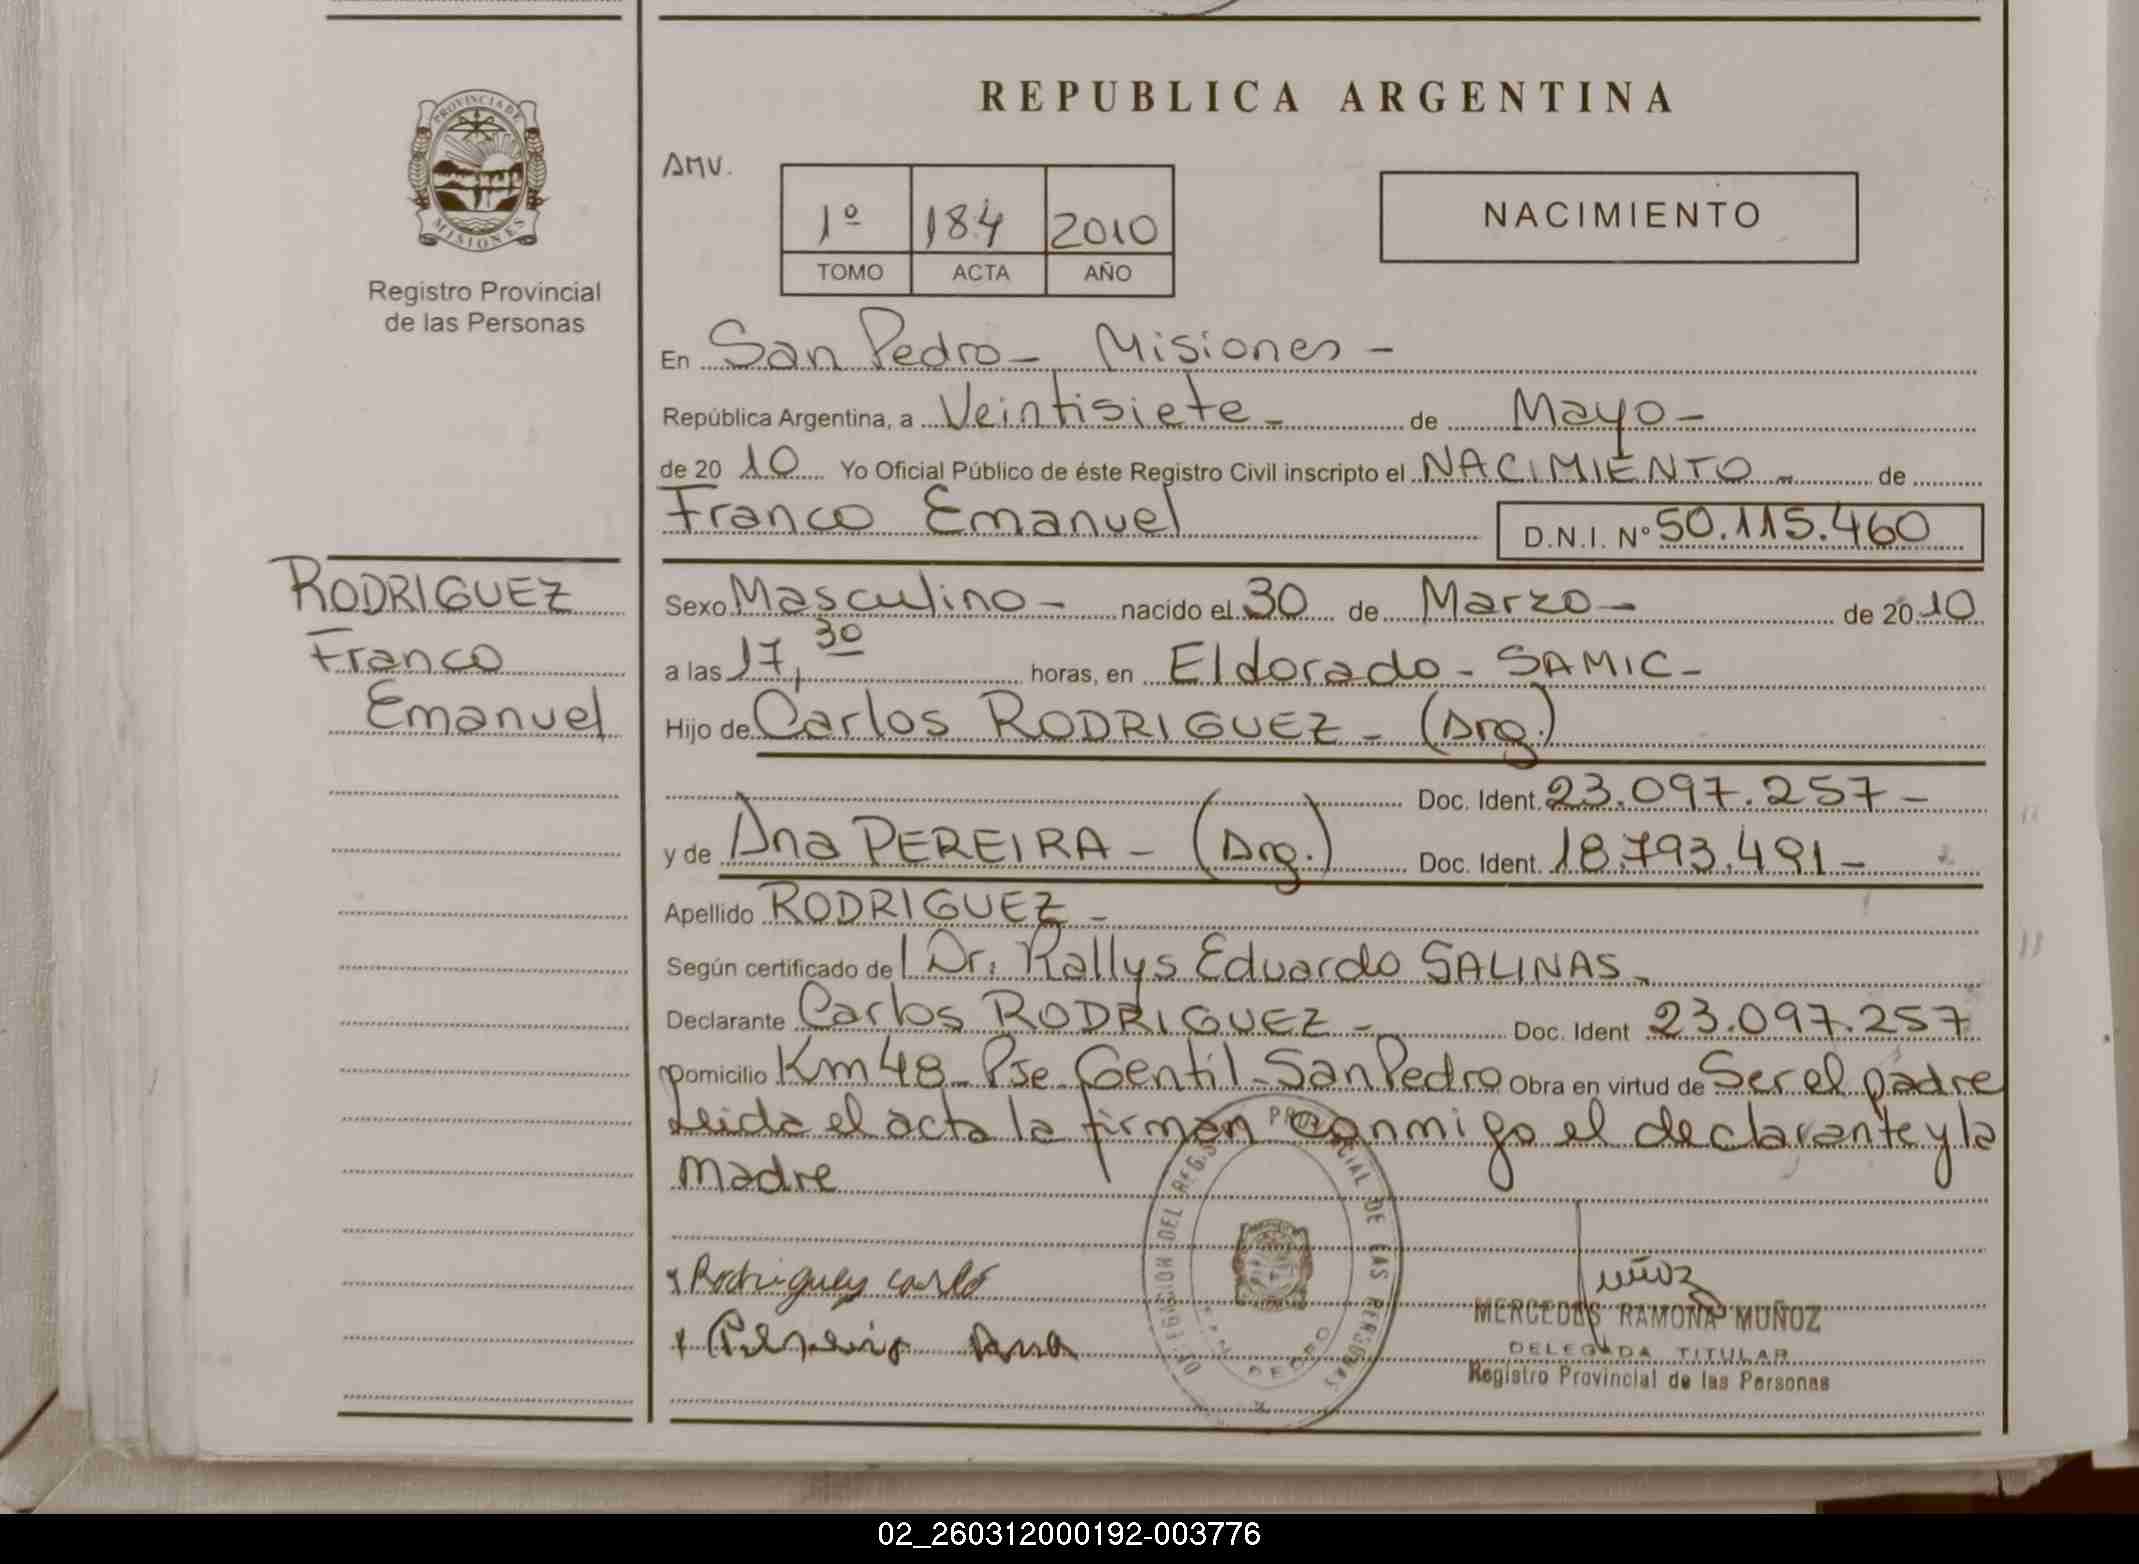 REPUBLICA ARGENTINA
PROVINCIA DE
MISIONES
Registro Provincial
de las Personas
AMV.
1º 184 2010
TOMO ACTA AÑO
NACIMIENTO
En San Pedro - Misiones -
República Argentina, a Veintisiete - de Mayo -
de 20 10 Yo Oficial Público de éste Registro Civil inscripto el NACIMIENTO - de
Franco Emanuel D.N.I. Nº 50.115.460
RODRIGUEZ
Franco
Emanuel
Sexo Masculino - nacido el 30 de Marzo - de 20 10
a las 17,30 horas, en Eldorado - SAMIC -
Hijo de Carlos RODRIGUEZ - (Arg.)
Doc. Ident. 23.097.257 -
y de Ana PEREIRA - (Arg.) Doc. Ident. 18.793.491 -
Apellido RODRIGUEZ -
Según certificado de l Dr. Rallys Eduardo SALINAS -
Declarante Carlos RODRIGUEZ - Doc. Ident 23.097.257
Domicilio Km 48 - Pje Gentil - San Pedro Obra en virtud de Ser el padre
Leida el acta la firman conmigo el declarante y la
madre
Rodriguez Carlo
Pereira Ana
DELEGACION DEL REGISTRO PROVINCIAL DE LAS PERSONAS
SAN PEDRO
Muñoz
MERCEDES RAMONA MUÑOZ
DELEGADA TITULAR
Registro Provincial de las Personas
02_260312000192-003776